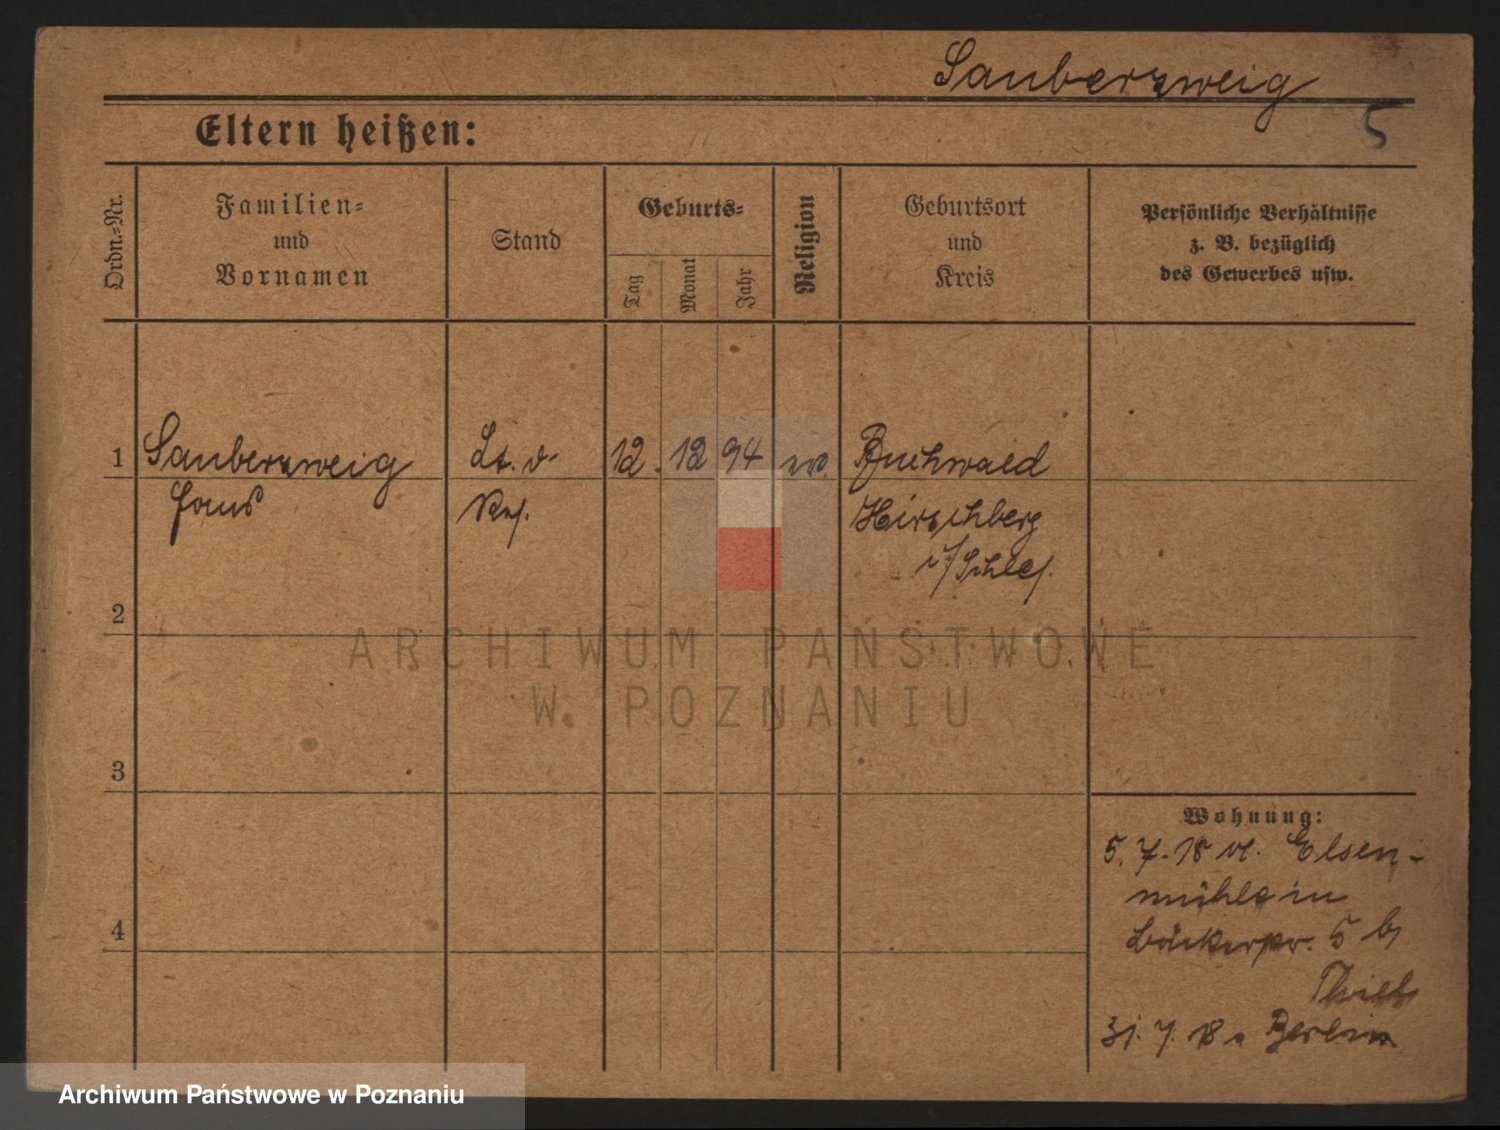 Sauberzweig
5
Eltern heißen:
Ordn.-Nr.
Familien-
und
Vornamen
Stand
Geburts-
Tag
Monat
Jahr
Religion
Geburtsort
und
Kreis
Persönliche Verhältnisse
z. B. bezüglich
des Gewerbes usw.
1 Sauberzweig Lt. d. 12. 12 94 ev. Buchwald
Hans Res. Hirschberg
i/Schles.
2
ARCHIWUM PAŃSTWOWE
W POZNANIU
3
Wohnung:
5. 7. 18 v. Elsen-
mühle in
Bäckerstr. 5 b/
4
31. 7. 18 n Berlin
Archiwum Państwowe w Poznaniu